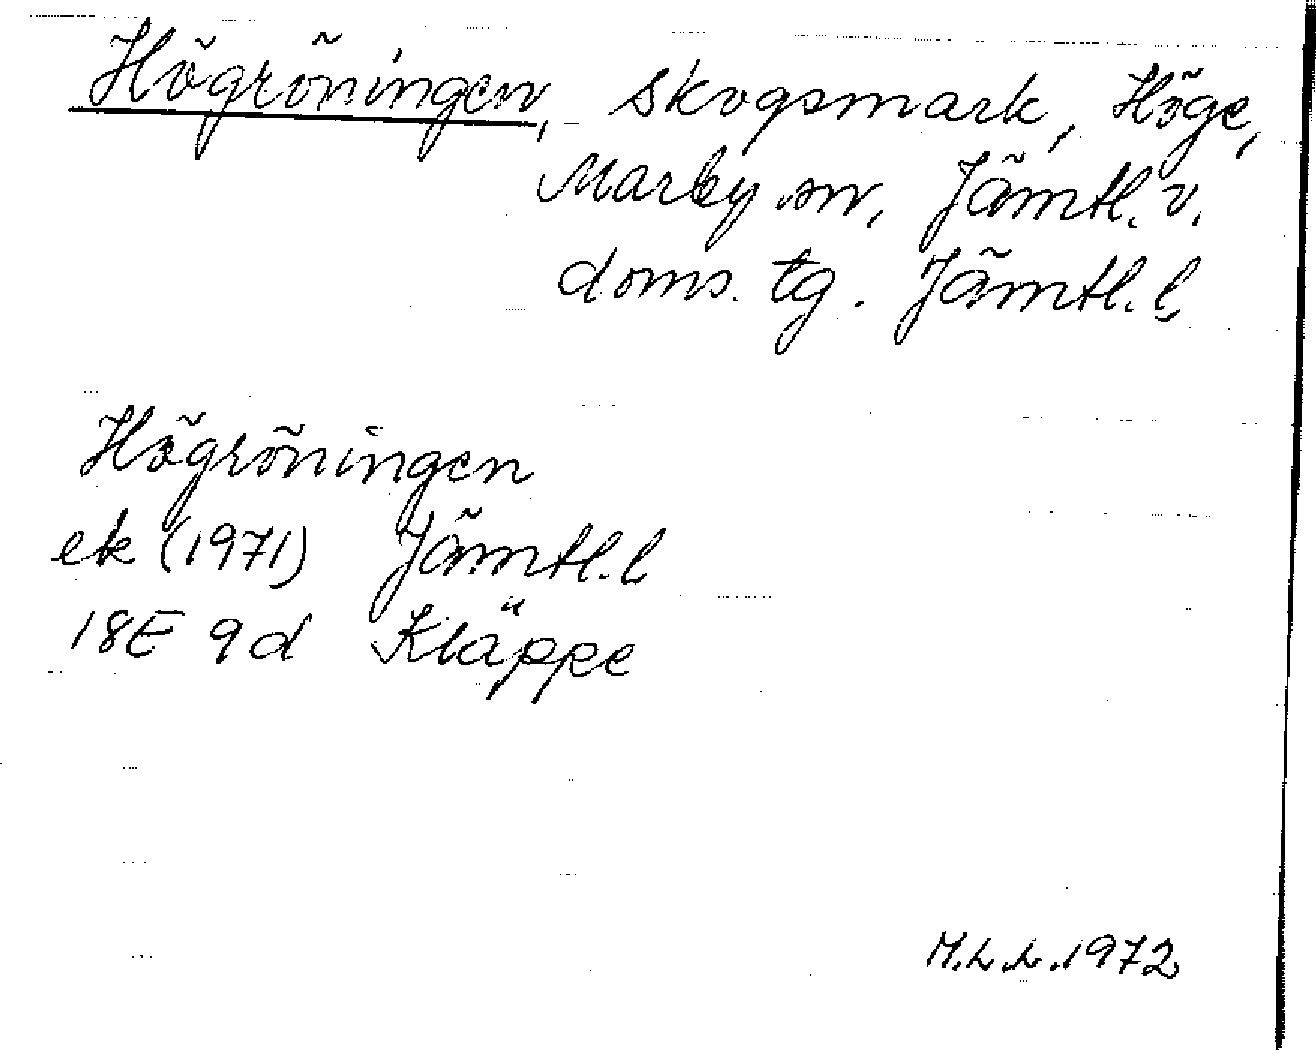 Högröningen, skogsmark, Höge,
Marby sn, Jämtl. v.
doms. tg. Jämtl. l.
Högröningen
ek (1971) Jämtl. l
18E 9d Kläppe
M.L.L. 1972